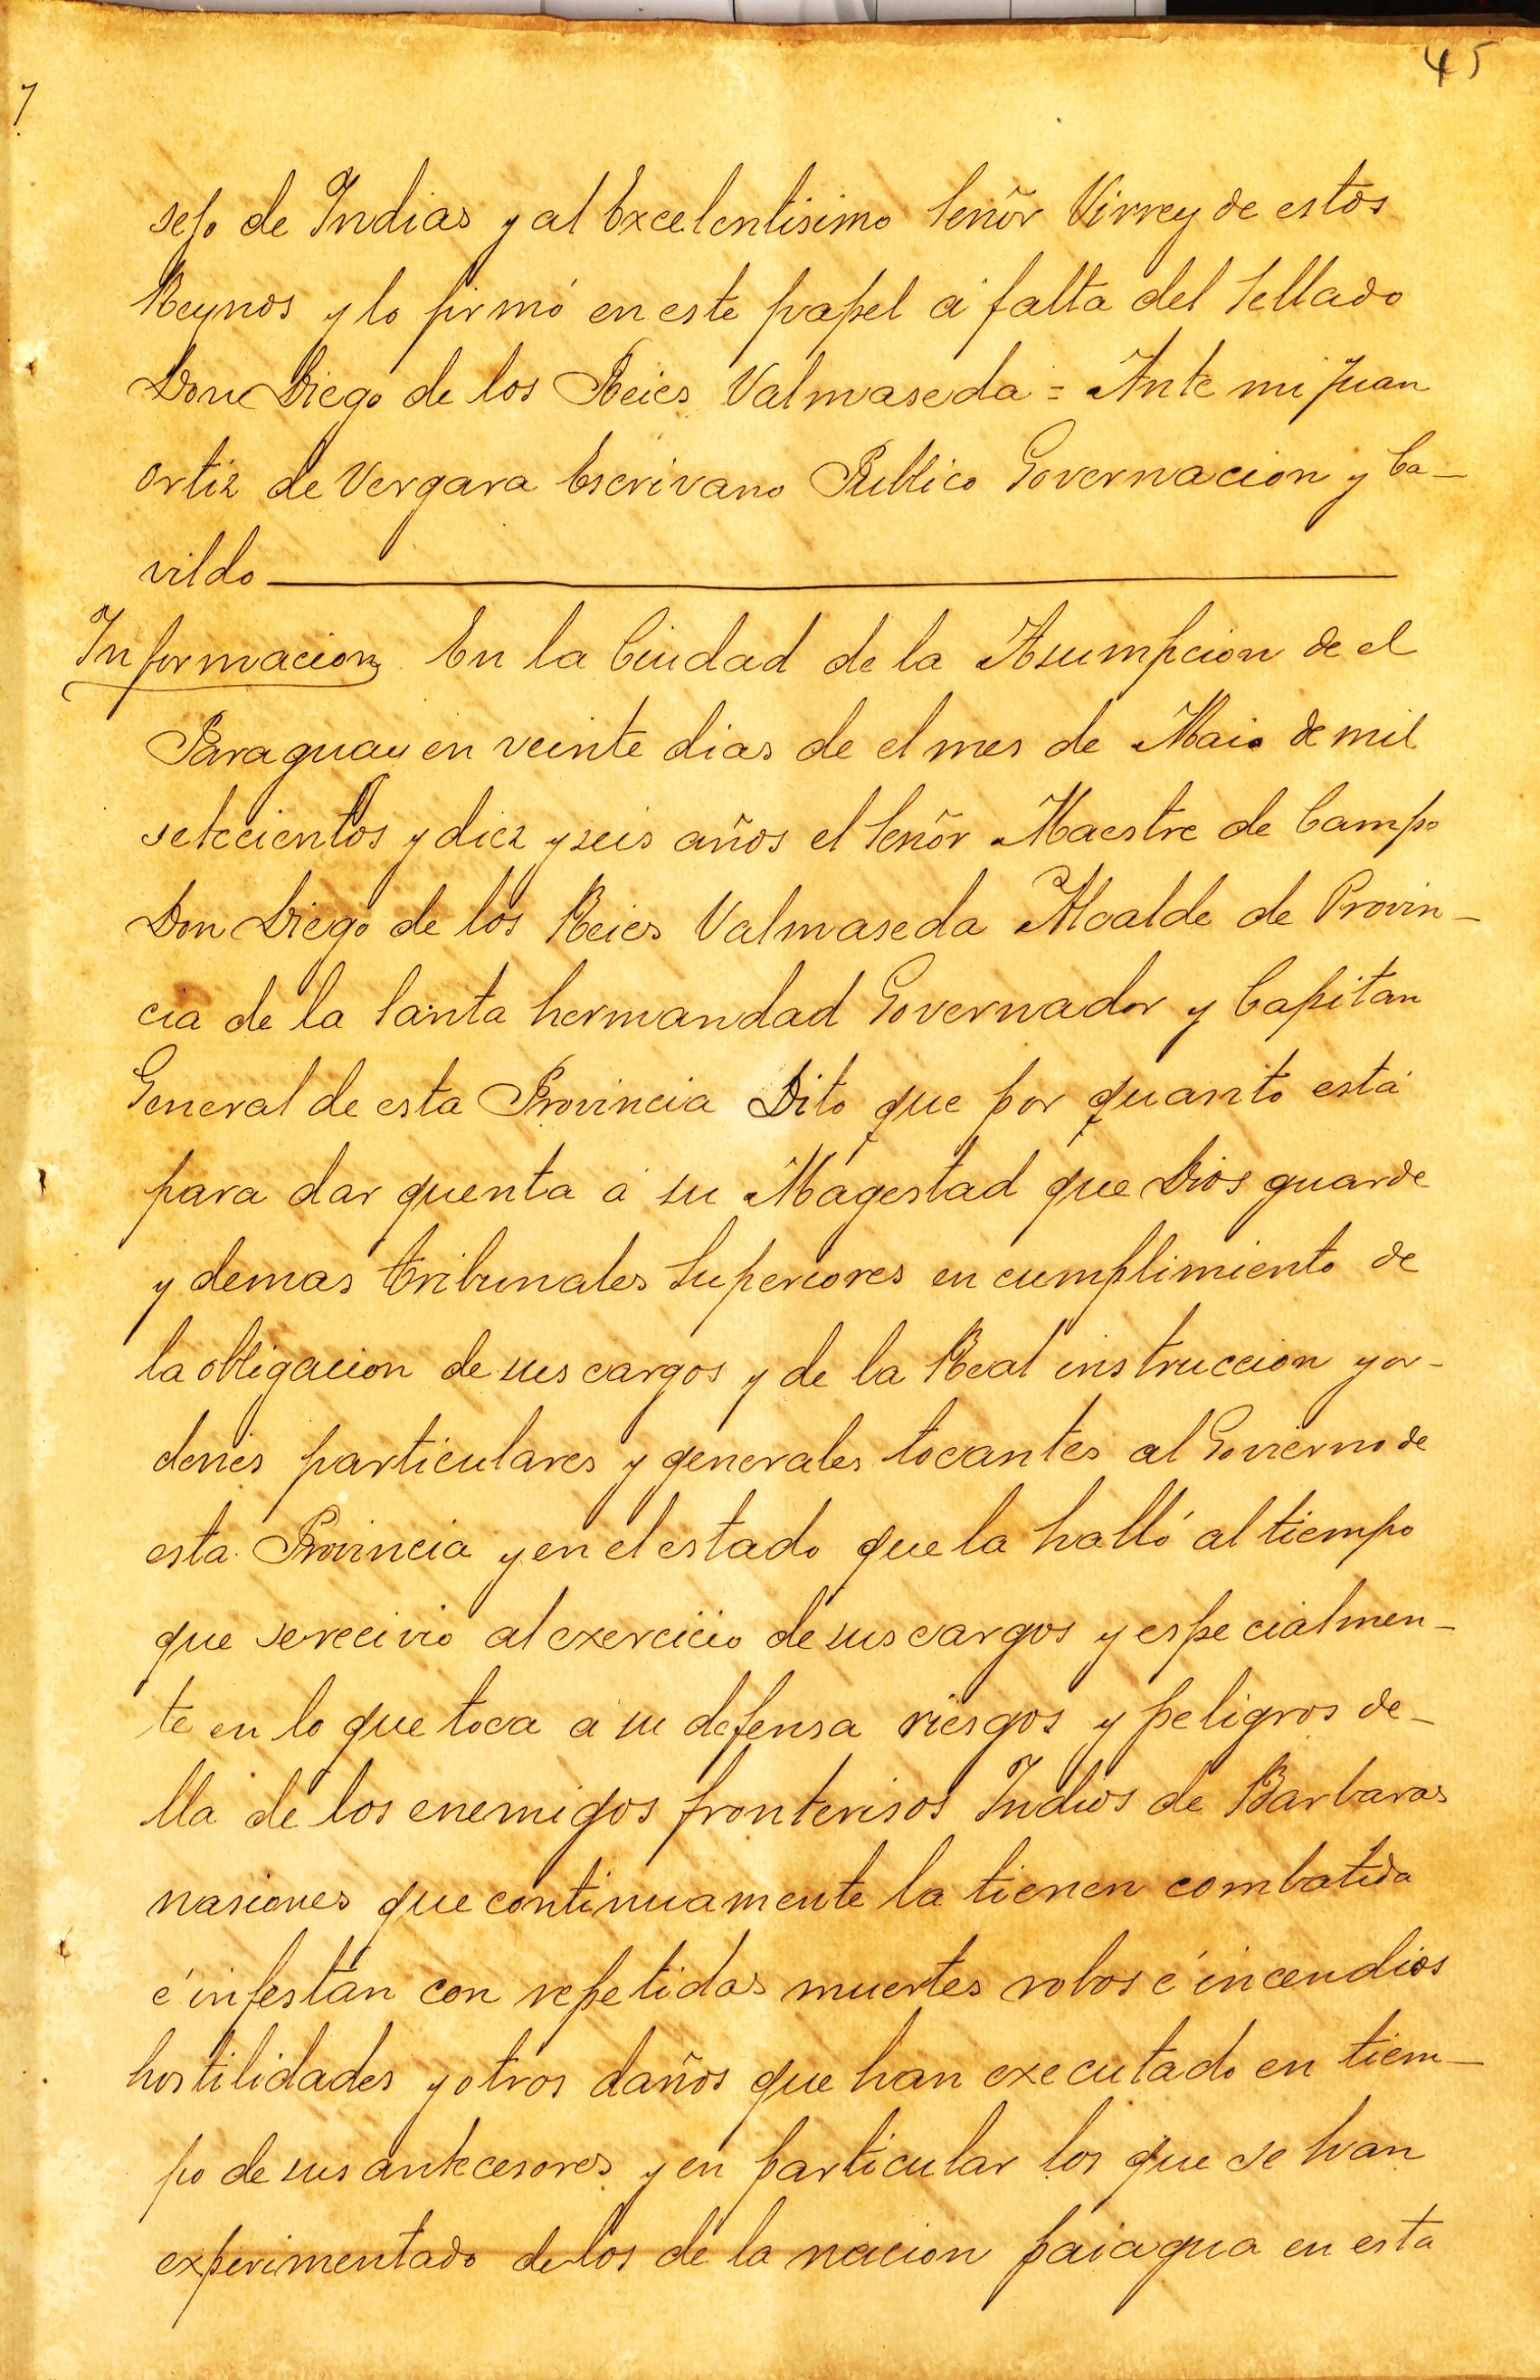 45
7
sejo de Indias y al Excelentisimo Señor Virrey de estos
Reynos y lo firmó en este papel á falta del Sellado
Don Diego de los Reies Valmaseda = Ante mi Juan
Ortiz de Vergara Escrivano Publico Governacion y Ca-
vildo
Informacion En la Ciudad de la Asumpcion de el
Paraguay en veinte dias de el mes de Maio de mil
setecientos y diez y seis años el Señor Maestre de Campo
Don Diego de los Reies Valmaseda Alcalde de Provin-
cia de la Santa hermandad Governador y Capitan
General de esta Provincia Dijo que por quanto está
para dar quenta á su Magestad que Dios guarde
y demas tribunales Superiores en cumplimiento de
la obligacion de sus cargos y de la Real instruccion y or-
denes particulares y generales tocantes al Govierno de
esta Provincia y en el estado que la halló al tiempo
que se recivio al exercicio de sus cargos y especialmen-
te en lo que toca a su defensa riesgos y peligros de-
lla de los enemigos fronterisos Indios de Barbaras
nasiones que continuamente la tienen combatida
é infestan con repetidas muertes robos é incendios
hostilidades y otros daños que han executado en tiem-
po de sus antecesores y en particular los que se han
experimentado de los de la nacion paiagua en esta